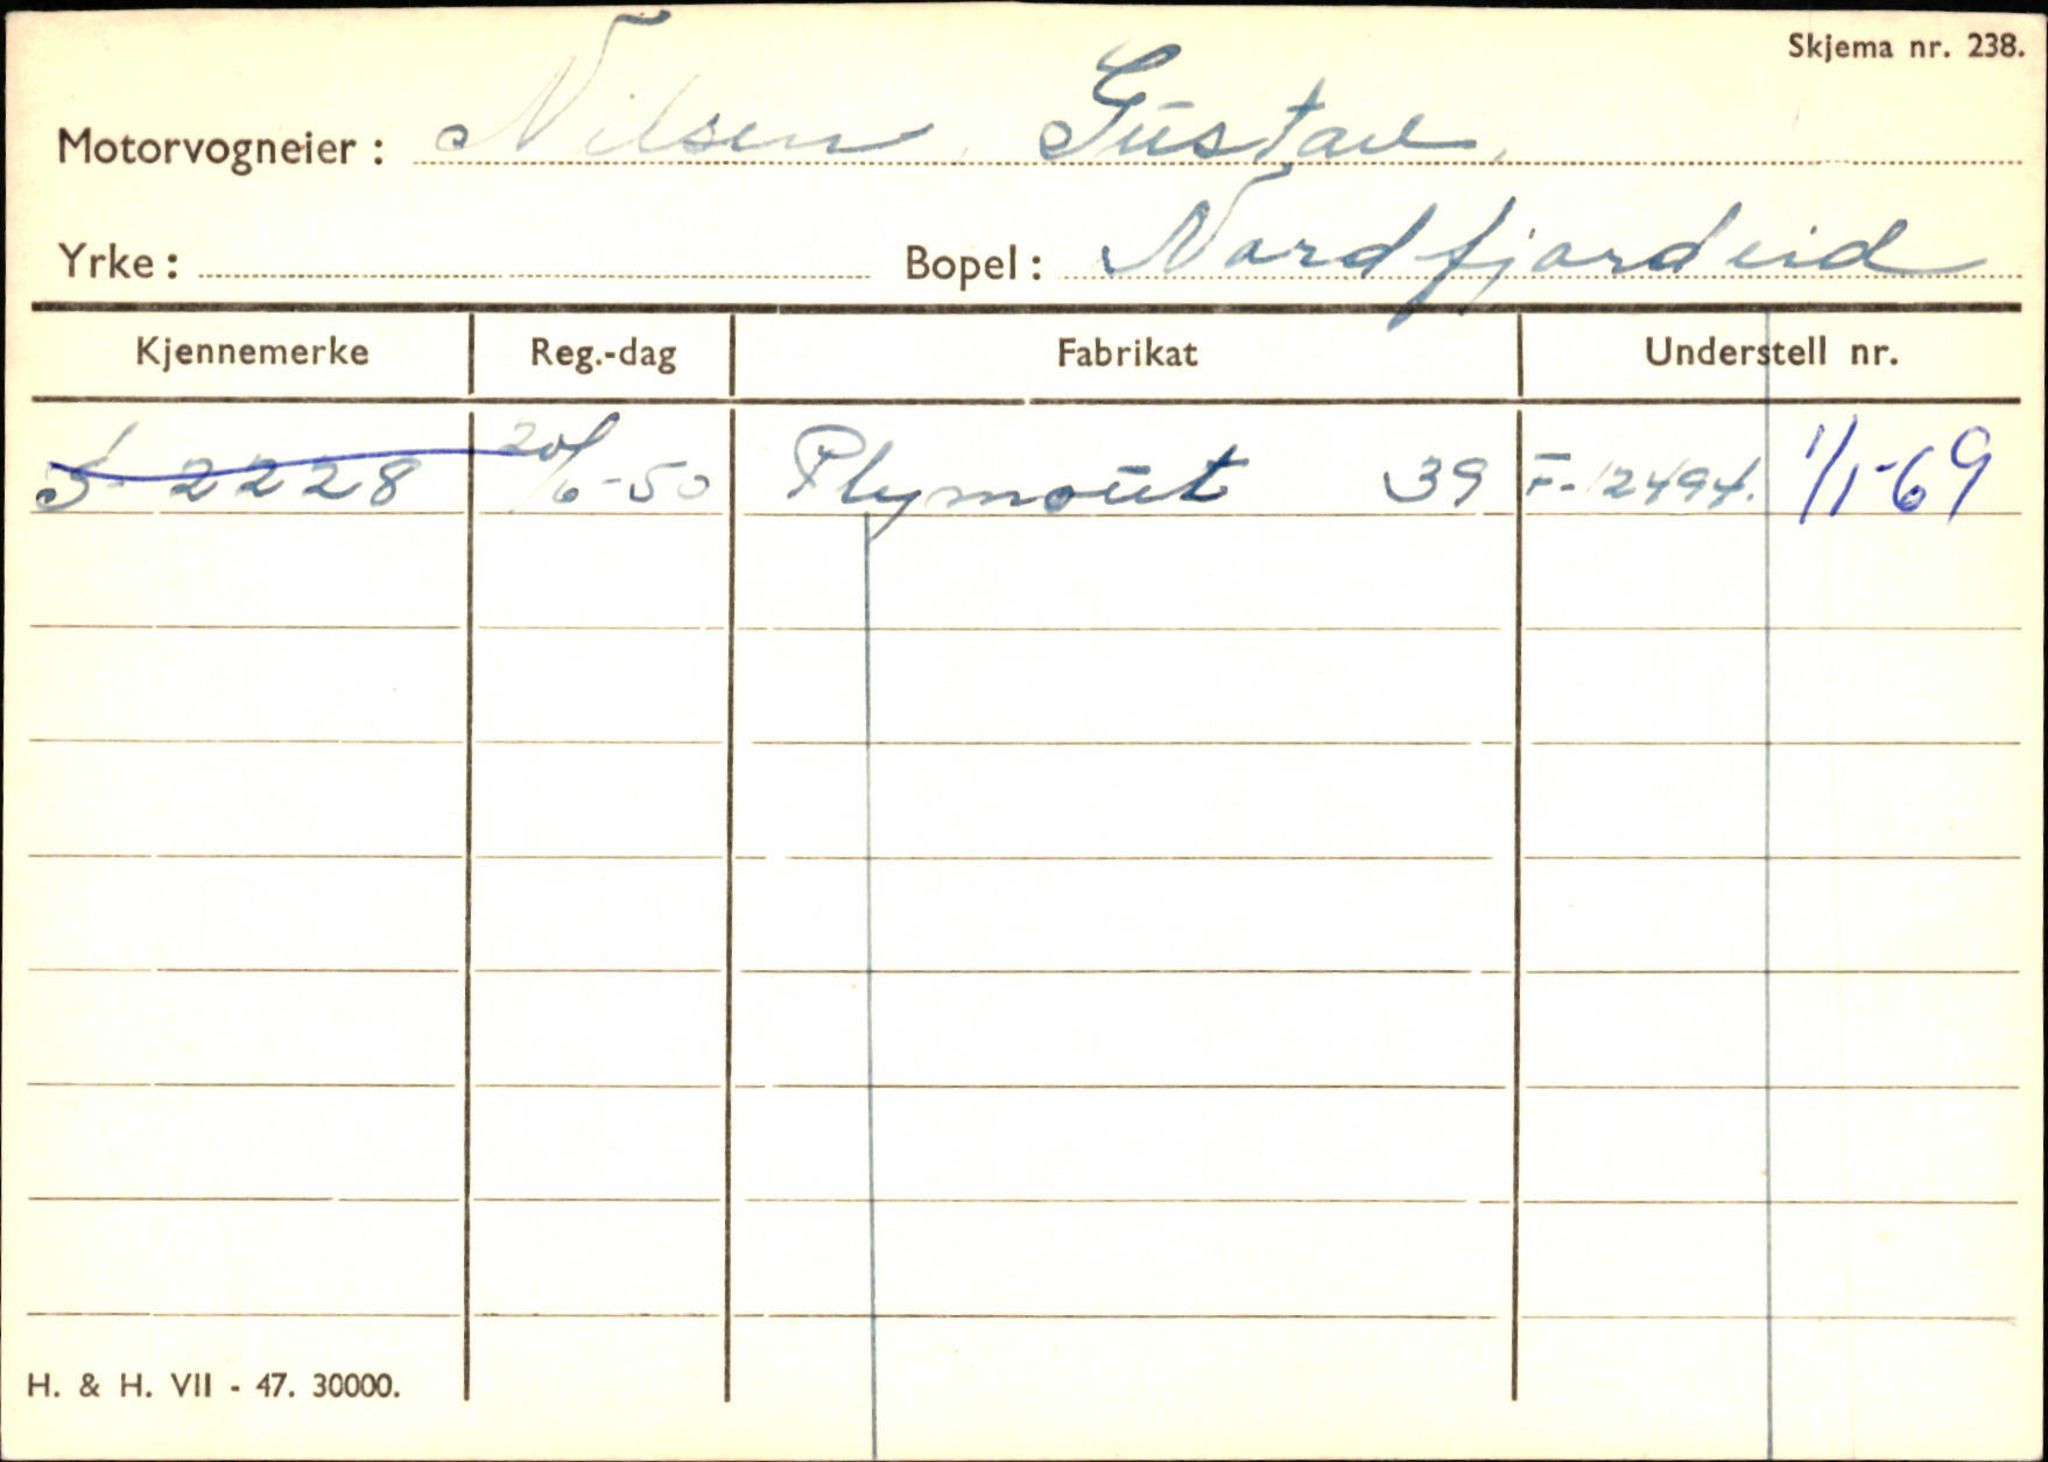 Skjema nr. 238.
Motorvogneier: Nilsen, Gustav.
Yrke: Bopel: Nordfjordeid
Kjennemerke Reg.-dag Fabrikat Understell nr.
S-2228 20/6-50 Plymout 39 F-12494. 1/1-69
H. & H. VII - 47. 30000.